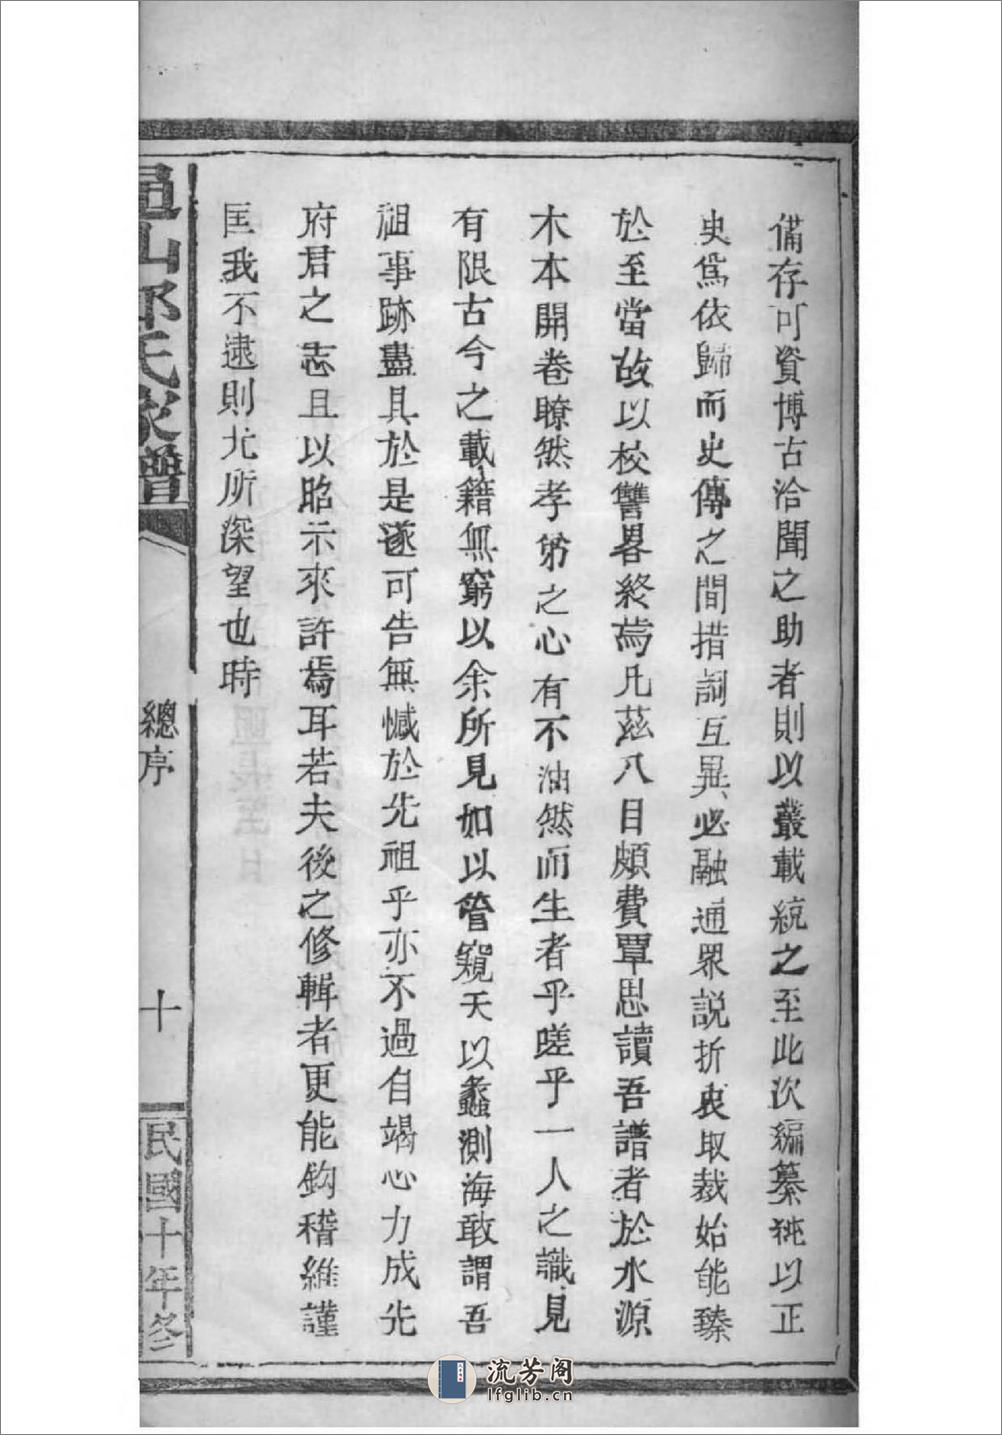 備存可資博古洽聞之助者則以叢載統之至此次編纂純以正
史爲依歸而史傳之間措詞互異必融通眾説折衷取裁始能臻
於至當故以校讐畧終焉凡茲八目頗費覃思讀吾譜者於水源
木本開卷瞭然孝弟之心有不油然而生者乎嗟乎一人之識見
有限古今之載籍無窮以余所見如以管窺天以蠡測海敢謂吾
祖事跡盡具於是遂可告無憾於先祖乎亦不過自竭心力成先
府君之志且以昭示來許焉耳若夫後之修輯者更能鈎稽維謹
匡我不逮則尤所深望也時
山邵氏家譜
總序
十
民國十年修
流芳阁
lfglib.cn